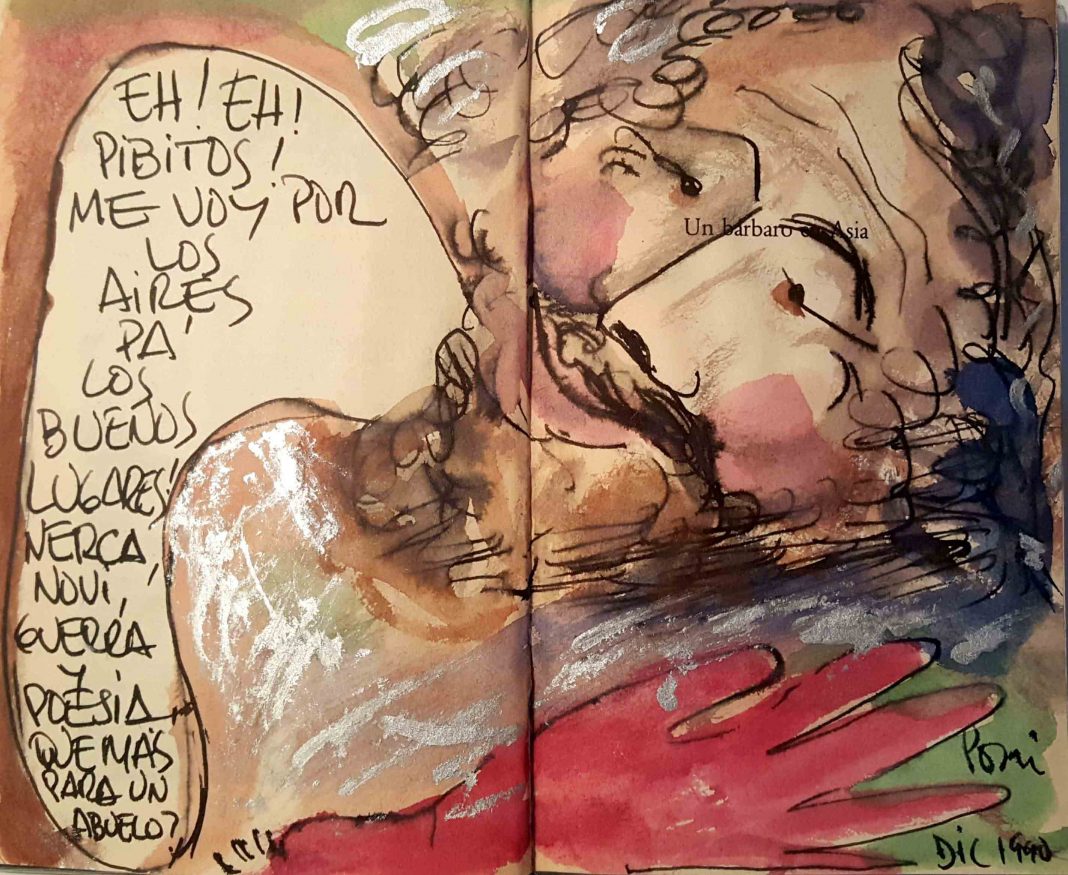 EH! EH!
PIBITOS!
ME VOY POR
LOS
AIRES
PA'
LOS
BUENOS
LUGARES!
NERCA
NOVI,
GUERRA
Y
POESIA
QUE MÁS
PARA UN
ABUELO?
Un bárbaro en Asia
DIC 1990